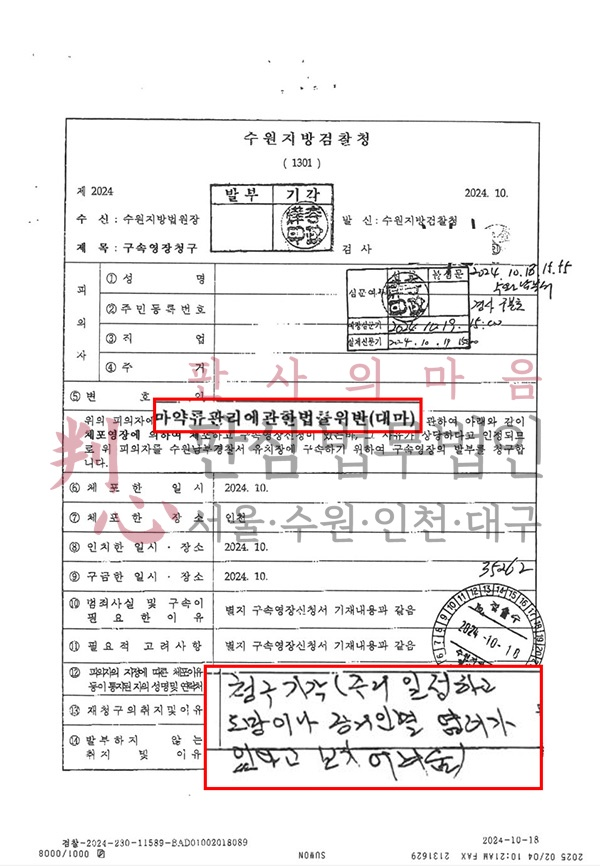 수원지방검찰청
( 1301 )
제 2024
발부 기각
2024. 10.
수 신 : 수원지방법원장
발 신 : 수원지방검찰청
제 목 : 구속영장청구
검 사
2024. 10. 18
피의자
① 성 명
② 주민등록번호
③ 직 업
④ 주 거
심문여부
2024. 10. 19. 15:00
판사의마음
⑤ 변 호 인
위의 피의자에 마약류관리에관한법률위반(대마) 관하여 아래와 같이
체포영장에 의하여 체포하고 구속영장신청이 있는바, 그 사유가 상당하다고 인정되므
로 위 피의자를 수원남부경찰서 유치장에 구속하기 위하여 구속영장의 발부를 청구합
니다.
判心
판심법무법인
서울·수원·인천·대구
⑥ 체포한 일시 2024. 10.
⑦ 체포한 장소 인천
⑧ 인치한 일시·장소 2024. 10.
⑨ 구금한 일시·장소 2024. 10.
35262
⑩ 범죄사실 및 구속이
필요한 이유
별지 구속영장신청서 기재내용과 같음
2024-10-18
⑪ 필요적 고려사항 별지 구속영장신청서 기재내용과 같음
⑫ 피의자의 지정에 따른 체포이유
등이 통지된 자의 성명 및 연락처
⑬ 재청구의 취지 및 이유
⑭ 발부하지 않는
취지 및 이유
청구기각 (주거 일정하고
도망이나 증거인멸 염려가
있다고 보기 어려움)
검찰-2024-230-11589-BAD01002018089
2024-10-18
0001/0008
SUWON
2025 02/04 10:21AM FAX 2131629